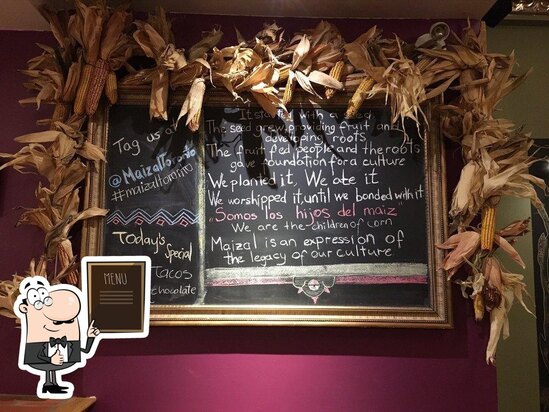 Tag us at
@MaizalToronto
#maizaltoronto
Today's
Special
Tacos
chocolate
It started with a seed
The seed grew, providing fruit and
developing roots
The fruit fed people and the roots
gave foundation for a culture
We planted it, We ate it
We worshipped it, until we bonded with it
"Somos los hijos del maiz
We are the children of corn
Maizal is an expression of
the legacy of our culture
MENU